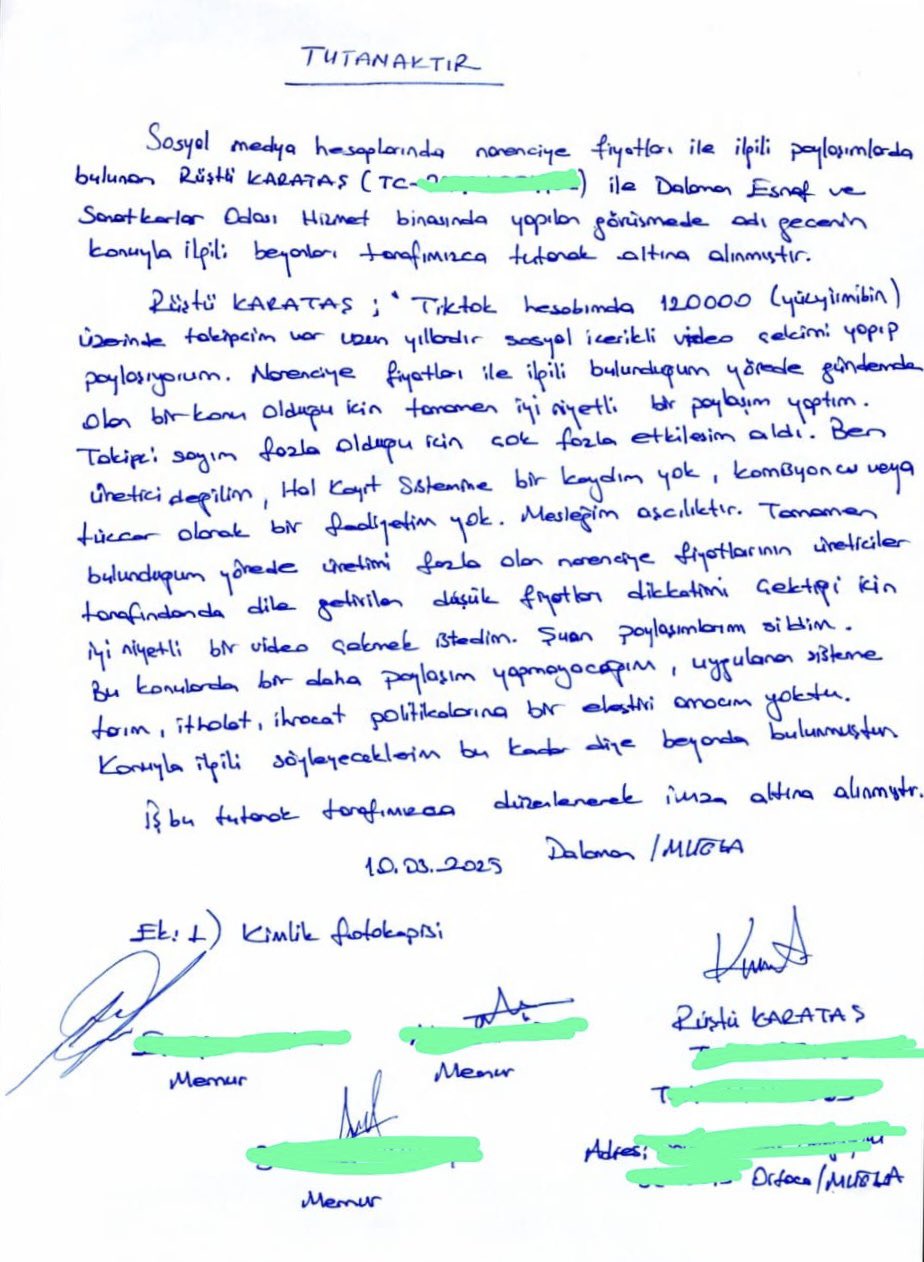 TUTANAKTIR
Sosyal medya hesaplarında narenciye fiyatları ile ilgili paylaşımlarda
bulunan Rüştü KARATAŞ (TC- ) ile Dalaman Esnaf ve
Sanatkarlar Odası Hizmet binasında yapılan görüşmede adı geçenin
konuyla ilgili beyanları tarafımızca tutanak altına alınmıştır.
Rüştü KARATAŞ ; " Tiktok hesabımda 120000 (yüzyirmibin)
üzerinde takipçim var uzun yıllardır sosyal içerikli video çekimi yapıp
paylaşıyorum. Narenciye fiyatları ile ilgili bulunduğum yörede gündemde
olan bir konu olduğu için tamamen iyi niyetli bir paylaşım yaptım.
Takipçi sayım fazla olduğu için çok fazla etkileşim aldı. Ben
üretici değilim, Hal Kayıt Sistemine bir kaydım yok, komisyoncu veya
tüccar olarak bir faaliyetim yok. Mesleğim aşçılıktır. Tamamen
bulunduğum yörede üretimi fazla olan narenciye fiyatlarının üreticiler
tarafındanda dile getirilen düşük fiyatları dikkatimi çektiği için
iyi niyetli bir video çekmek istedim. Şuan paylaşımlarım sildim.
Bu konularda bir daha paylaşım yapmayacağım, uygulanan sisteme
tarım, ithalat, ihracat politikalarına bir eleştiri amacım yoktu.
Konuyla ilgili söyleyeceklerim bu kadar diye beyanda bulunmuştur.
İş bu tutanak tarafımızca düzenlenerek imza altına alınmıştır.
10.03.2025 Dalaman /MUĞLA
Ek: 1) Kimlik fotokopisi
Rüştü KARATAŞ
Memur
Memur
Adres:
Ortaca/MUĞLA
Memur